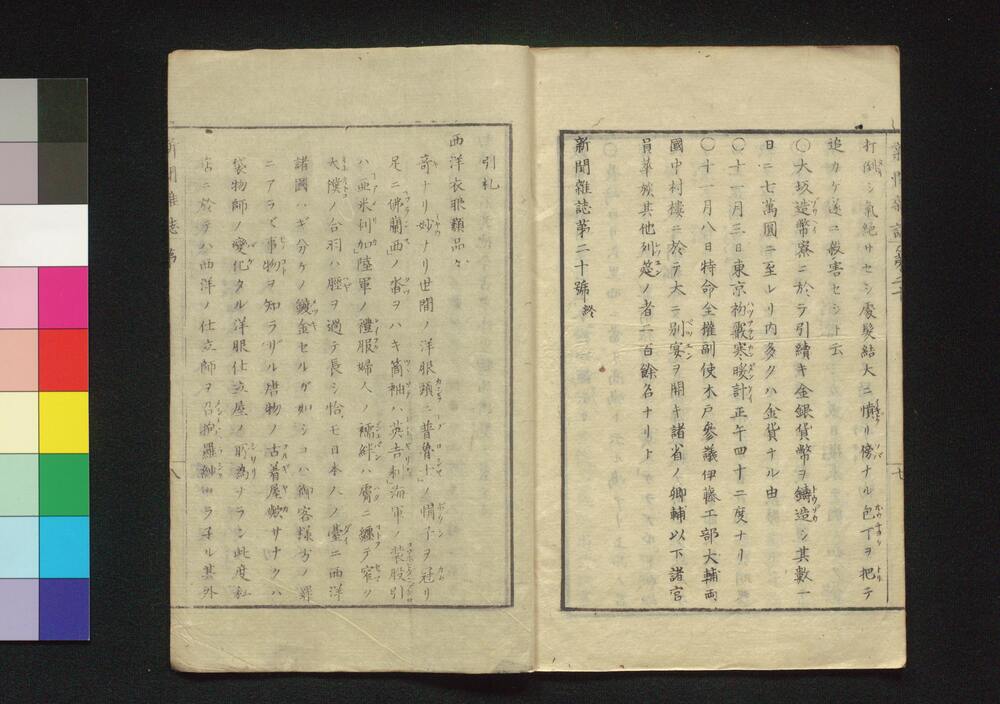 打倒シ氣絶サセシ處髮結大ニ憤リ傍ナル包丁ヲ把テ
追カケ遂ニ殺害セシト云
〇大坂造幣寮ニ於テ引續キ金銀貨幣ヲ鑄造シ其數一
日ニ七萬圓ニ至レリ内多クハ金貨ナル由
〇十一月三日東京初雪寒暖計正午四十二度ナリ
〇十一月八日特命全權副使木戸參議伊藤工部大輔両
國中村樓ニ於テ大ニ別宴ヲ開キ諸省ノ卿輔以下諸官
員華族其他列筵ノ者二百餘名ナリト
新聞雜誌第二十號終
七
引札
西洋衣服類品々
奇ナリ妙ナリ世間ノ洋服頭ニ普魯士ノ帽子ヲ冠リ
足ニ佛蘭西ノ沓ヲハキ筒袖ハ英吉利海軍ノ装股引
ハ亜米利加陸軍ノ禮服婦人ノ襦絆ハ膚ニ纏テ窄ク
大僕ノ合羽ハ脛ヲ過テ長シ恰モ日本人ノ臺ニ西洋
諸國ハギ分ケノ鍍金セルガ如シコハ御客様方ノ罪
ニアラズ事物ヲ知ラザル唐物ノ古着屋歟サナクハ
袋物師ノ變化タル洋服仕立屋ノ所為ナラン此度私
店ニ於テハ西洋ノ仕立師ヲ召抱羅紗
ヲ其外
新聞雜誌
八